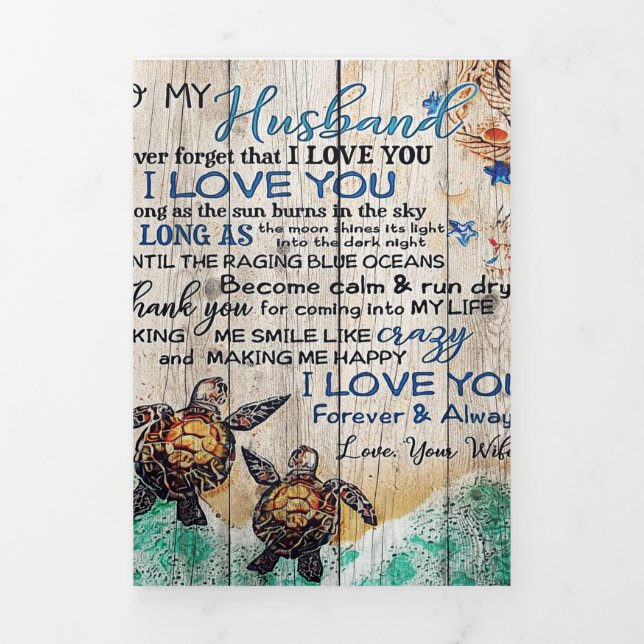 O MY Husband
ver forget that I LOVE YOU
I LOVE YOU
ong as the sun burns in the sky
LONG AS the moon shines its light
into the dark night
NTIL THE RAGING BLUE OCEANS
Become calm & run dry
hank you for coming into MY LIFE
KING ME SMILE LIKE crazy
and MAKING ME HAPPY
I LOVE YOU
Forever & Alway
Love, Your Wife